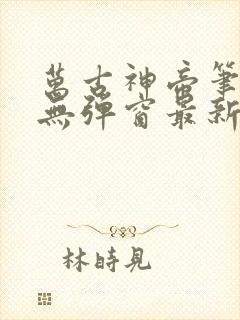 萬古神帝筆
無彈窗最新
林時見